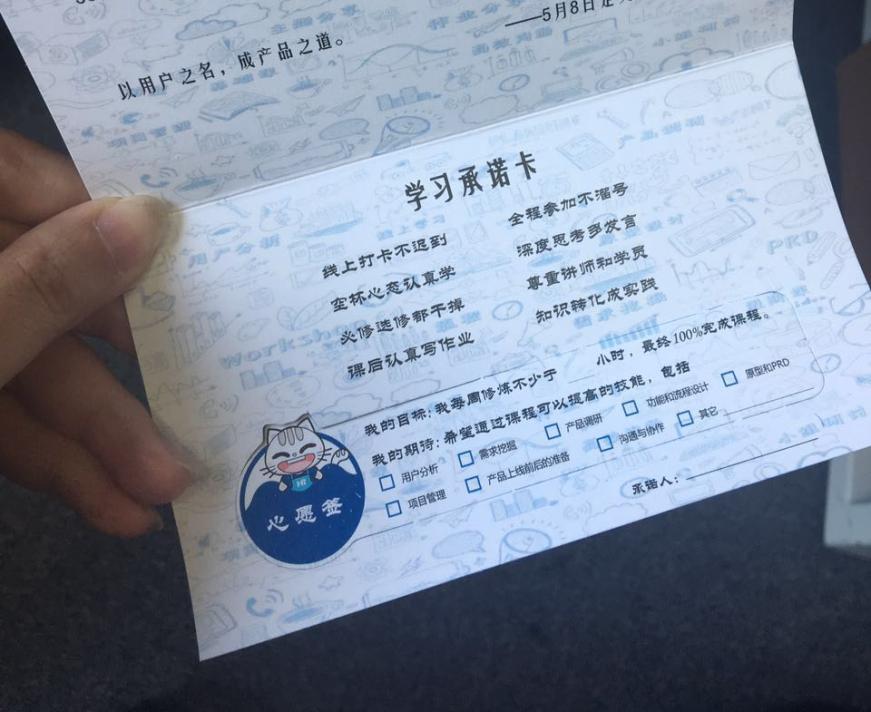 ——5月8日
以用户之名，成产品之道。
学习承诺卡
线上打卡不迟到
全程参加不溜号
空杯心态认真学
深度思考多发言
必修选修都干掉
尊重讲师和学员
课后认真写作业
知识转化成实践
我的目标：我每周修炼不少于 小时，最终100%完成课程。
我的期待：希望通过课程可以提高的技能，包括
□ 用户分析 □ 需求挖掘 □ 产品调研 □ 功能和流程设计 □ 原型和PRD
□ 项目管理 □ 产品上线前后的准备 □ 沟通与协作 □ 其它
HI
心愿签
承诺人：
Workshop
用户分析
PRD